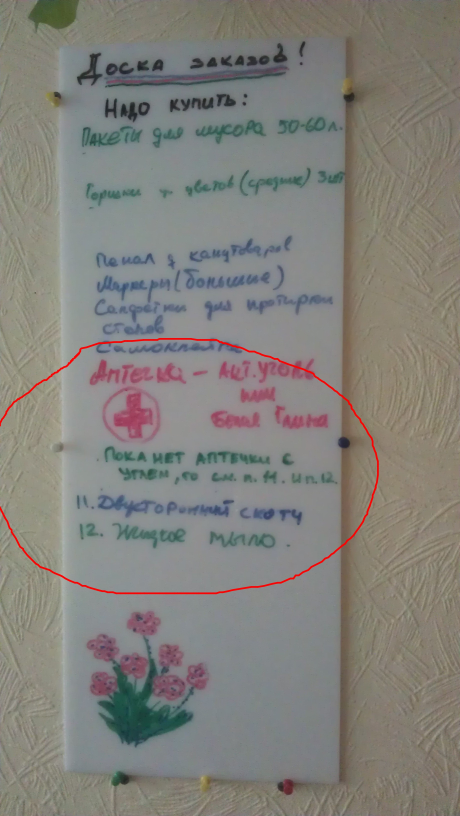 Доска заказов!
Надо купить:
Пакети для мусора 50-60л.
Горшки цветов (средние) 3шт
Пенал канцтоваров
Маркеры (большие)
Салфетки для протирки
столов
Самоклейка
Аптечка – Акт.уголь
или
белая глина
.Пока нет аптечки с
углем, то см. п. 11. и п.12.
11. Двусторонний скотч
12. Жидкое мыло.